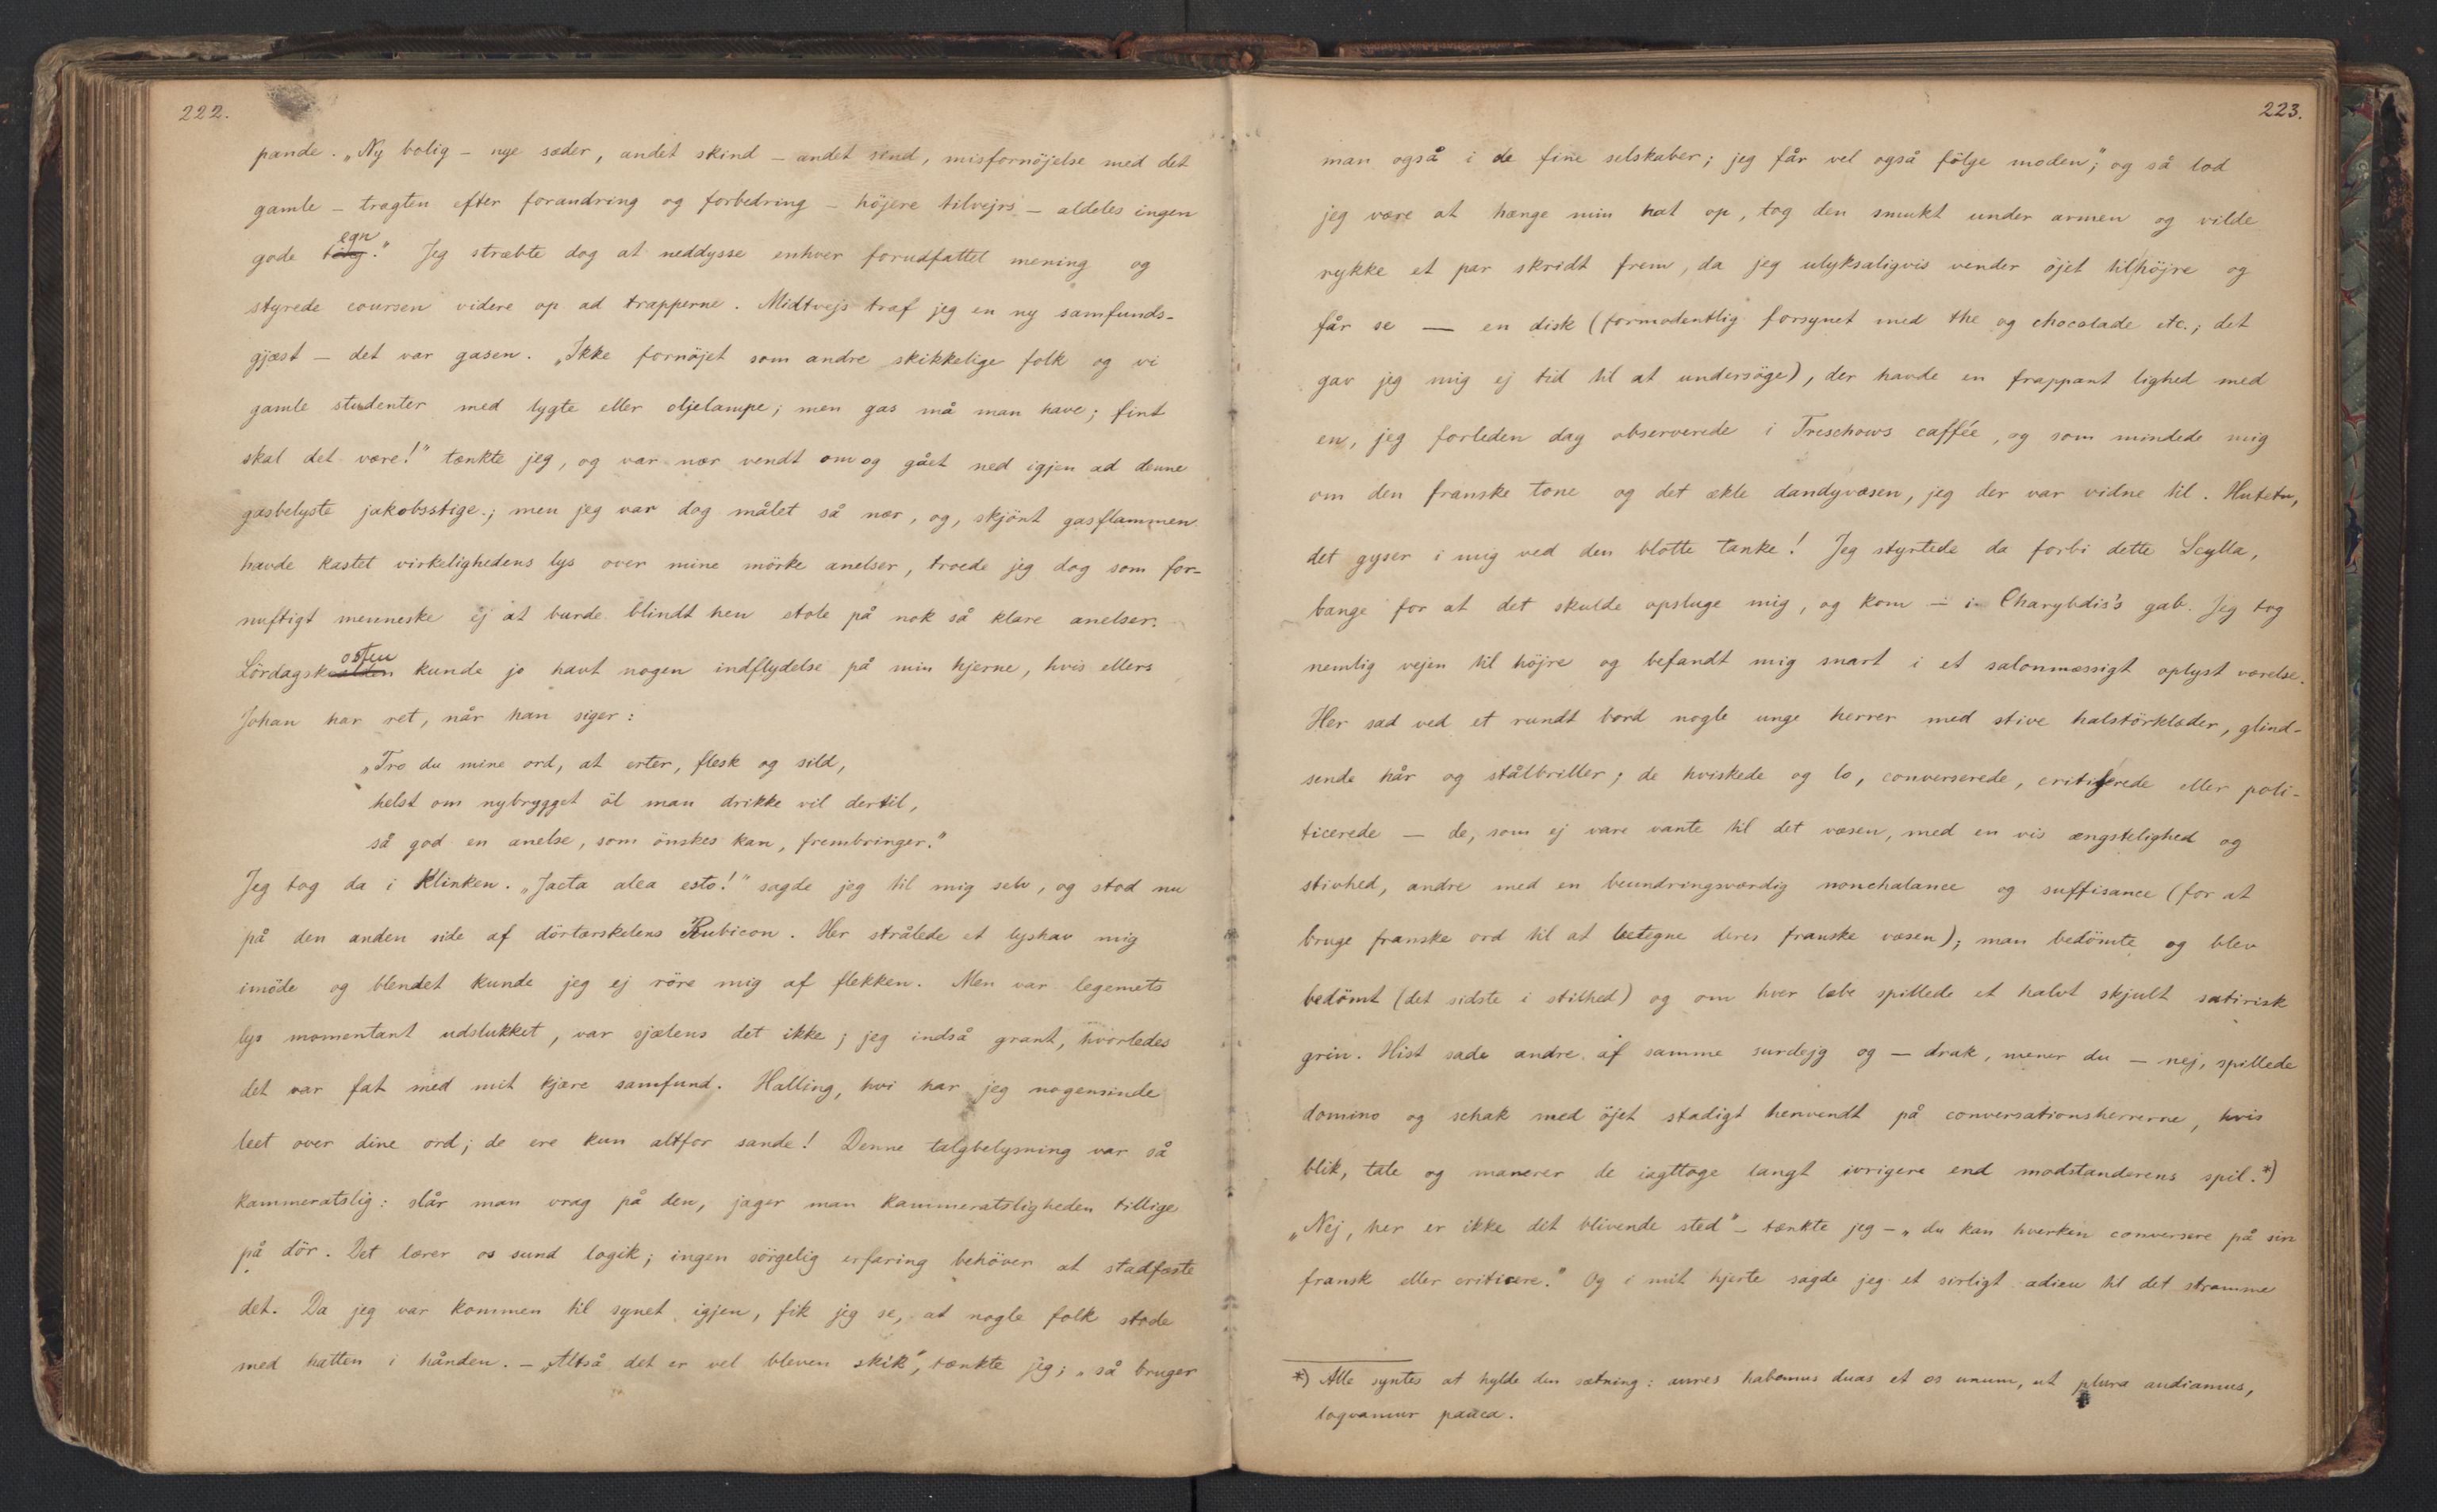 222.
pande. „Ny bolig – nye sæder, andet skind – andet sind, misfornöjelse med det
gamle – tragten efter forandring og forbedring – höjere tilvejrs – aldeles ingen
gode egn." Jeg stræbte dog at neddysse enhver forudfattet mening og
styrede coursen videre op ad trapperne. Midtvejs traf jeg en ny samfunds-
gjæst – det var gasen. „Ikke fornöjet som andre skikkelige folk og vi
gamle studenter med lygte eller oljelampe; men gas må man have; fint
skal det være!" tænkte jeg, og var nær vendt om og gået ned igjen ad denne
gasbelyste jakobsstige.; men jeg var dog målet så nær, og, skjönt gasflammen
havde kastet virkelighedens lys over mine mörke anelser, troede jeg dog som for-
nuftigt menneske ej at burde blindt hen stole på nok så klare anelser.
Lördagskosten kunde jo havt nogen indflydelse på min hjerne, hvis ellers
Johan har ret, når han siger:
„Tro du mine ord, at erter, flesk og sild,
helst om nybrygget öl man drikke vil dertil,
så god en anelse, som önskes kan, frembringer."
Jeg tog da i Klinken. „Jacta alea esto!" sagde jeg til mig selv, og stod nu
på den anden side af dörtærskelens Rubicon. Her strålede et lyshav mig
imöde og blendet kunde jeg ej röre mig af flekken. Men var legemets
lys momentant udslukket, var sjælens det ikke; jeg indså grant, hvorledes
det var fat med mit kjære samfund. Halling, hvi har jeg nogensinde
leet over dine ord; de ere kun altfor sande! Denne talgbelysning var så
kammeratslig: slår man vrag på den, jager man kammeratsligheden tillige
på dör. Det lærer os sund logik; ingen sörgelig erfaring behöver at stadfæste
det. Da jeg var kommen til synet igjen, fik jeg se, at nogle folk stode
med hatten i hånden. – „Altså det er vel bleven skik", tænkte jeg; „så bruger
223.
man også i de fine selskaber; jeg får vel også fölge moden;" og så lod
jeg være at hænge min hat op, tog den smukt under armen og vilde
rykke et par skridt frem, da jeg ulyksaligvis vender öjet til höjre og
får se — en disk (formodentlig forsynet med the og chocolade etc.; det
gav jeg mig ej tid til at undersöge), der havde en frappant lighed med
en, jeg forleden dag observerede i Treschows caffée, og som mindede mig
om den franske tone og det ækle dandyvæsen, jeg der var vidne til. Hutetu,
det gyser i mig ved den blotte tanke! Jeg styrtede da forbi dette Scylla,
bange for at det skulde opsluge mig, og kom – i Charybdis's gab. Jeg tog
nemlig vejen til höjre og befandt mig snart i et salonmæssigt oplyst værelse.
Her sad ved et rundt bord nogle unge herrer med stive halstörklæder, glind-
sende hår og stålbriller; de hviskede og lo, converserede, criticerede eller poli-
ticerede — de, som ej vare vante til det væsen, med en vis ængstelighed og
stivhed, andre med en beundringsværdig nonchalance og suffisance (for at
bruge franske ord til at betegne deres franske væsen); man bedömte og blev
bedömt (det sidste i stilhed) og om hver læbe spillede et halvt skjult satirisk
grin. Hist sade andre af samme surdejg og – drak, mener du – nej, spillede
domino og schak med öjet stadigt henvendt på conversationsherrerne, hvis
blik, tale og manerer de iagttoge langt ivrigere end modstanderens spil.*)
„Nej, her er ikke det blivende sted" – tænkte jeg – „du kan hverken conversere på sin
fransk eller criticere." Og i mit hjerte sagde jeg et sirligt adieu til det stramme
*) Alle syntes at hylde den sætning: aures habemus duas et os unum, ut plura audiamus,
loqvamur pauca.